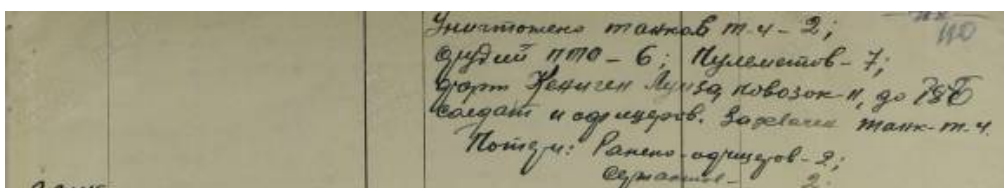 110
Уничтожено танков т-4 - 2;
орудий ПТО - 6; Пулеметов - 7;
форт Кениген Луиза, повозок - 11, до
солдат и офицеров. Захвачен танк - т-4.
Потери: Ранено - офицеров - 2;
сержантов - 2.